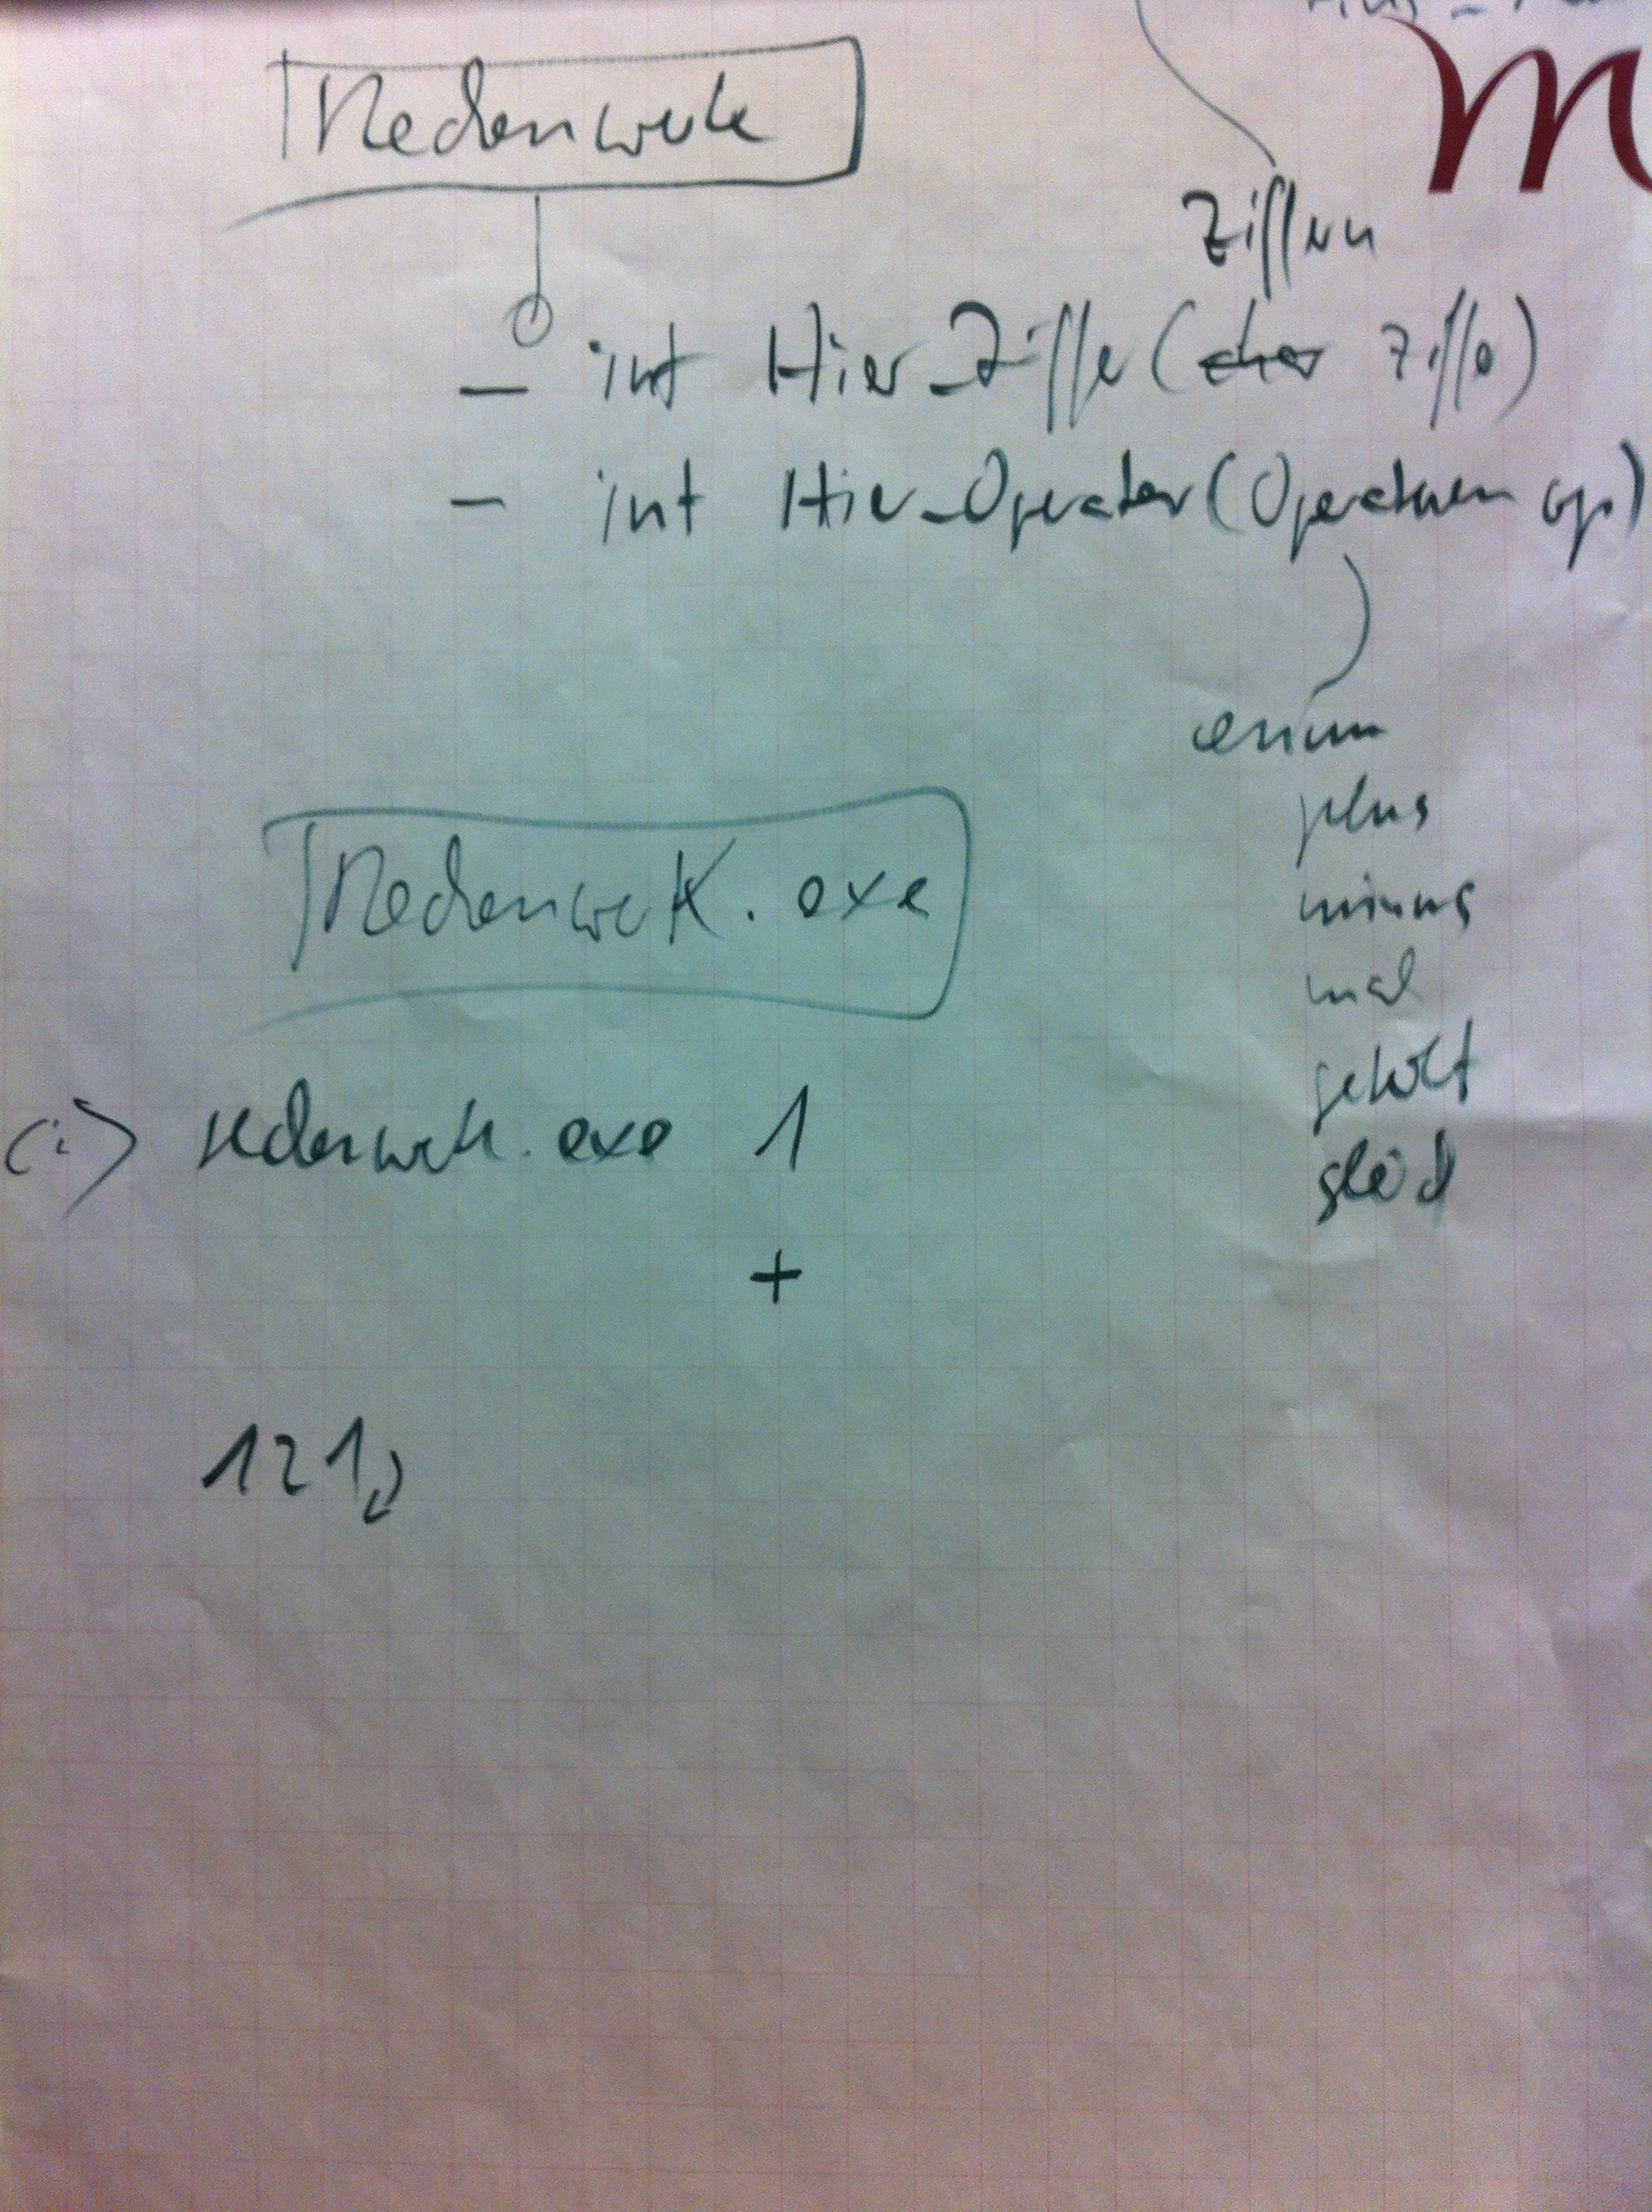 m
Rechenwerk
Ziffern
- int Hier_Ziffer(char Ziffer)
- int Hier_Operator(Operatoren op)
enum
plus
minus
mal
geteilt
gleich
Rechenwerk.exe
(i) rechenwerk.exe 1
+
121